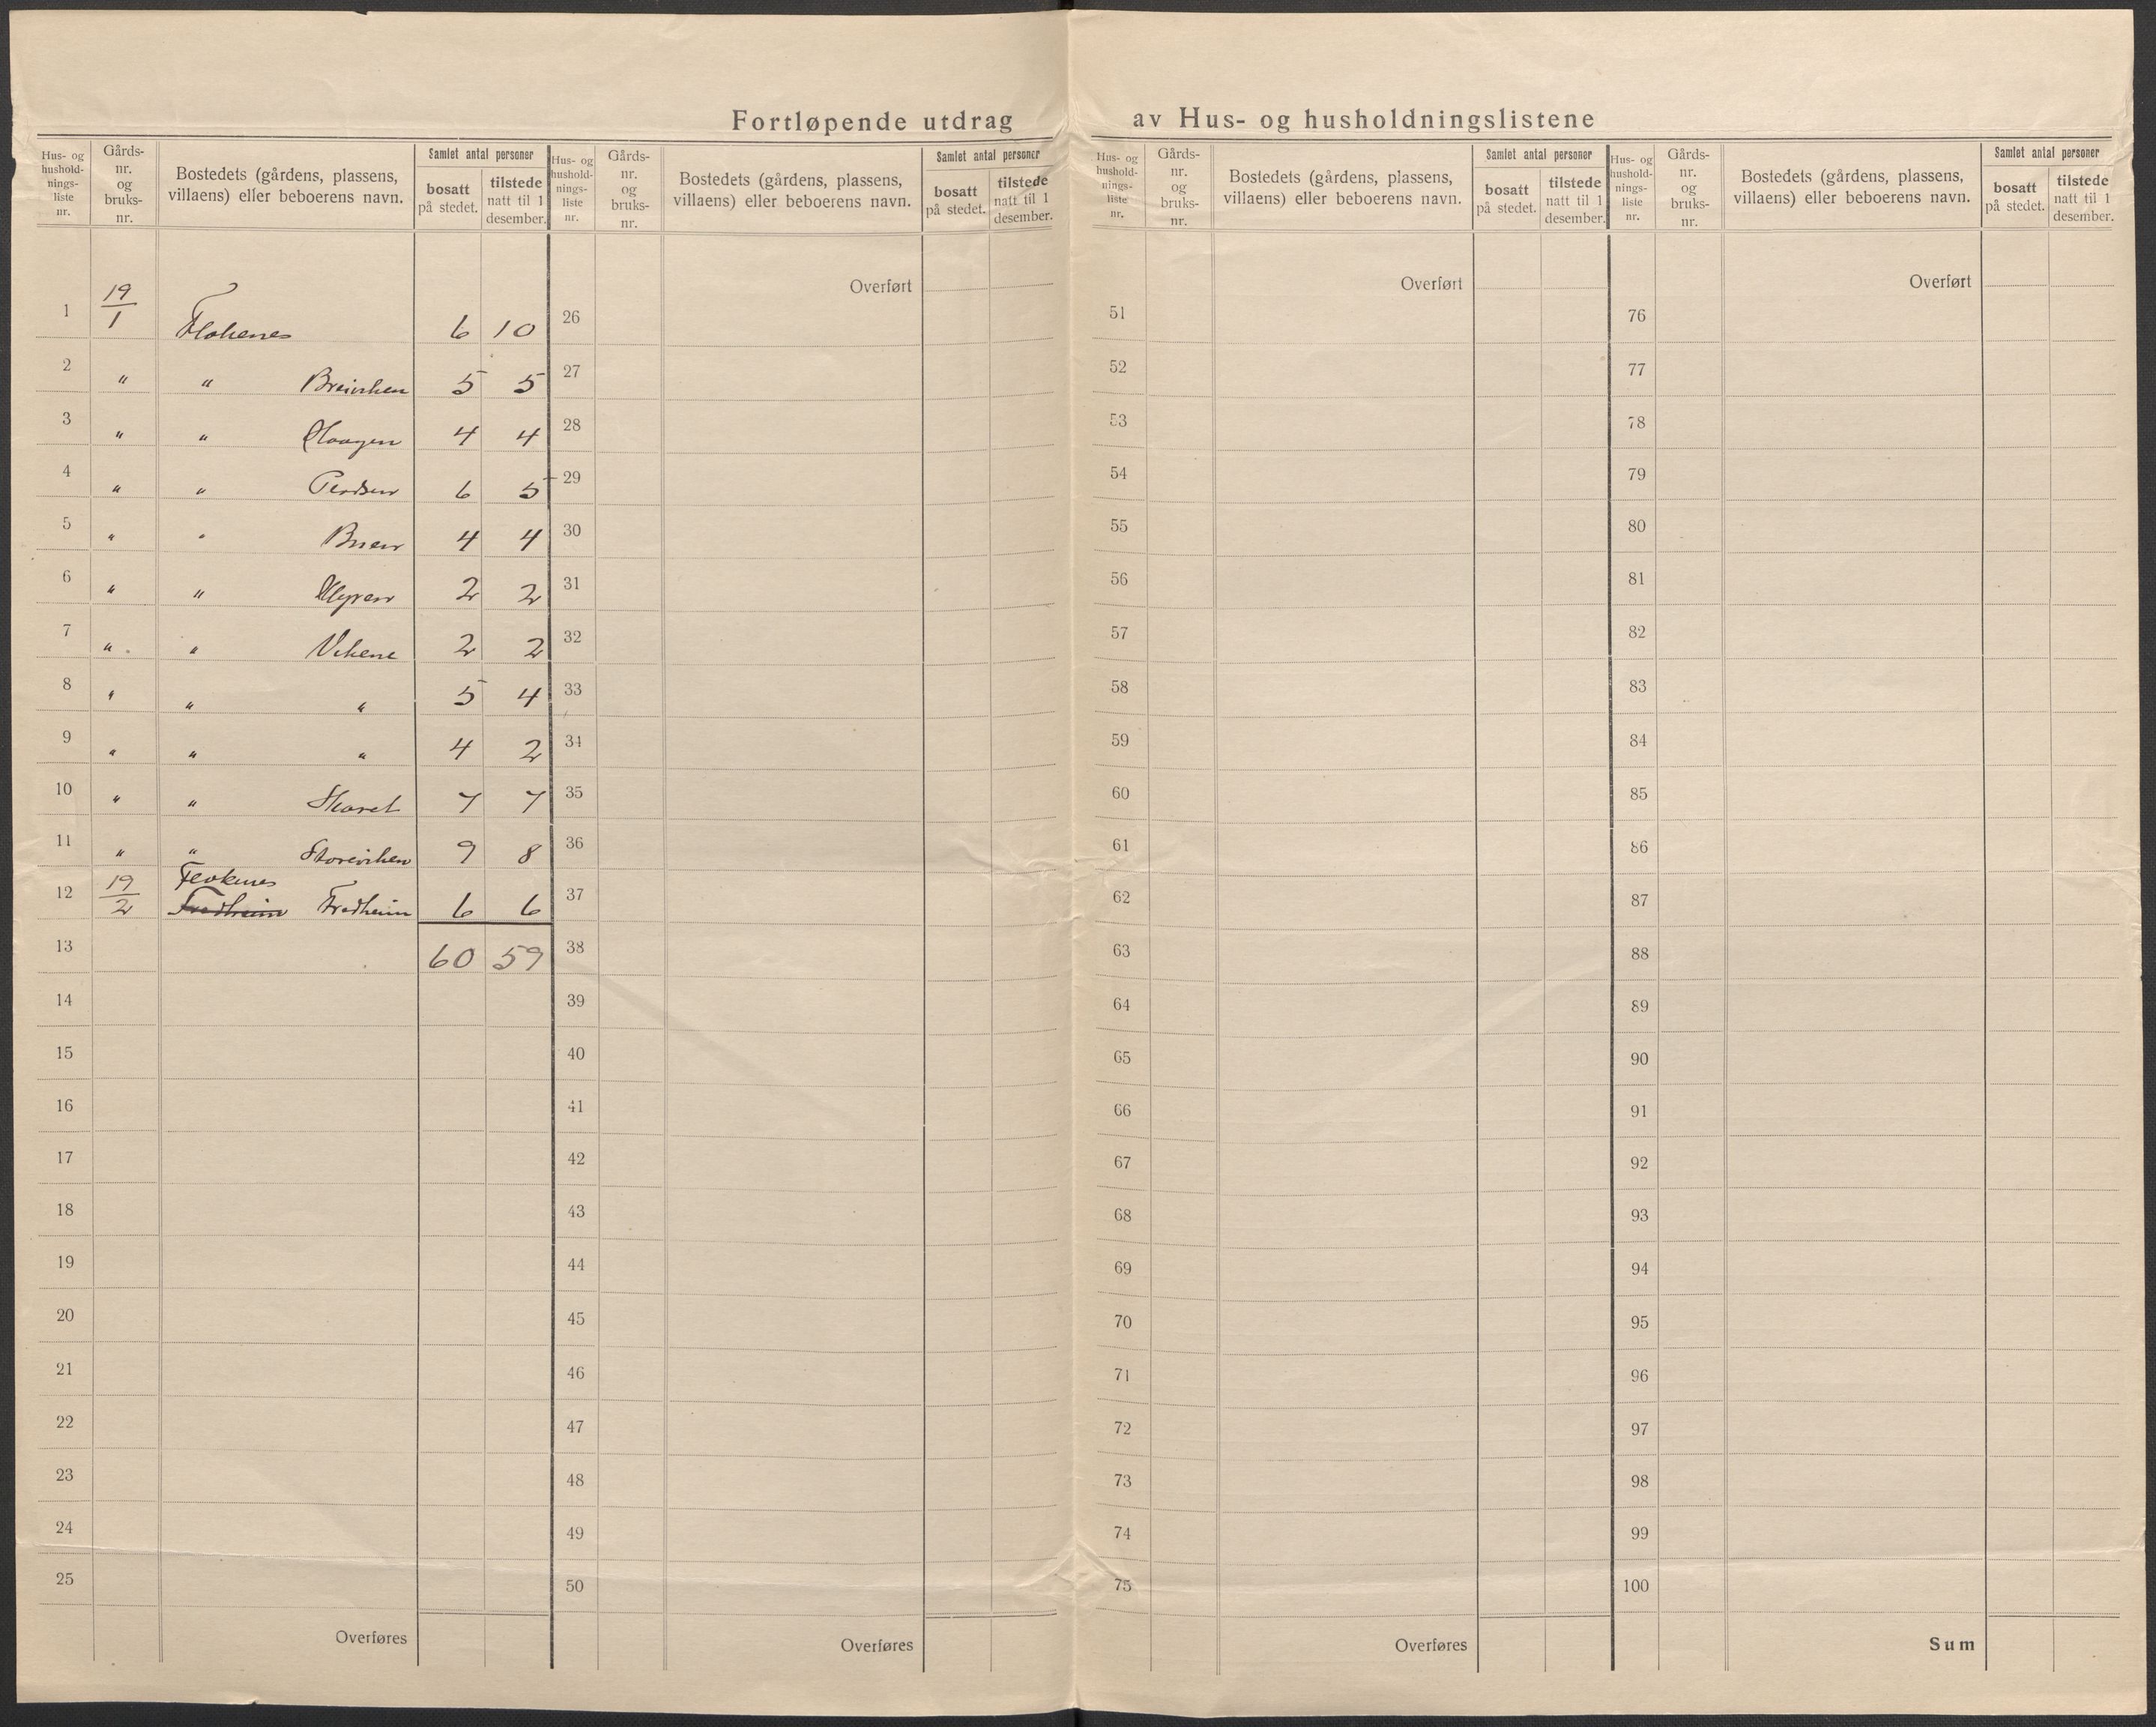 Fortløpende utdrag av Hus- og husholdningslistene
Hus- og hushold-nings-liste nr. Gårds-nr. og bruks-nr. Bostedets (gårdens, plassens, villaens) eller beboerens navn. Samlet antal personer bosatt på stedet. tilstede natt til 1 desember.
Hus- og hushold-nings-liste nr. Gårds-nr. og bruks-nr. Bostedets (gårdens, plassens, villaens) eller beboerens navn. Samlet antal personer bosatt på stedet. tilstede natt til 1 desember.
Hus- og hushold-nings-liste nr. Gårds-nr. og bruks-nr. Bostedets (gårdens, plassens, villaens) eller beboerens navn. Samlet antal personer bosatt på stedet. tilstede natt til 1 desember.
Hus- og hushold-nings-liste nr. Gårds-nr. og bruks-nr. Bostedets (gårdens, plassens, villaens) eller beboerens navn. Samlet antal personer bosatt på stedet. tilstede natt til 1 desember.
1 19/1 Flokenes 6 10
2 " " Breiviken 5 5
3 " " Haagen 4 4
4 " " 6 5
5 " " 4 4
6 " " Myren 2 2
7 " " Vikene 2 2
8 " " " 5 4
9 " " " 4 2
10 " " Skaret 7 7
11 " " Storeviken 9 8
12 19/2 Flokenes Fredheim Fredheim 6 6
13 60 59
14
15
16
17
18
19
20
21
22
23
24
25
Overføres
Overført
26
27
28
29
30
31
32
33
34
35
36
37
38
39
40
41
42
43
44
45
46
47
48
49
50
Overføres
Overført
51
52
53
54
55
56
57
58
59
60
61
62
63
64
65
66
67
68
69
70
71
72
73
74
75
Overføres
Overført
76
77
78
79
80
81
82
83
84
85
86
87
88
89
90
91
92
93
94
95
96
97
98
99
100
Sum